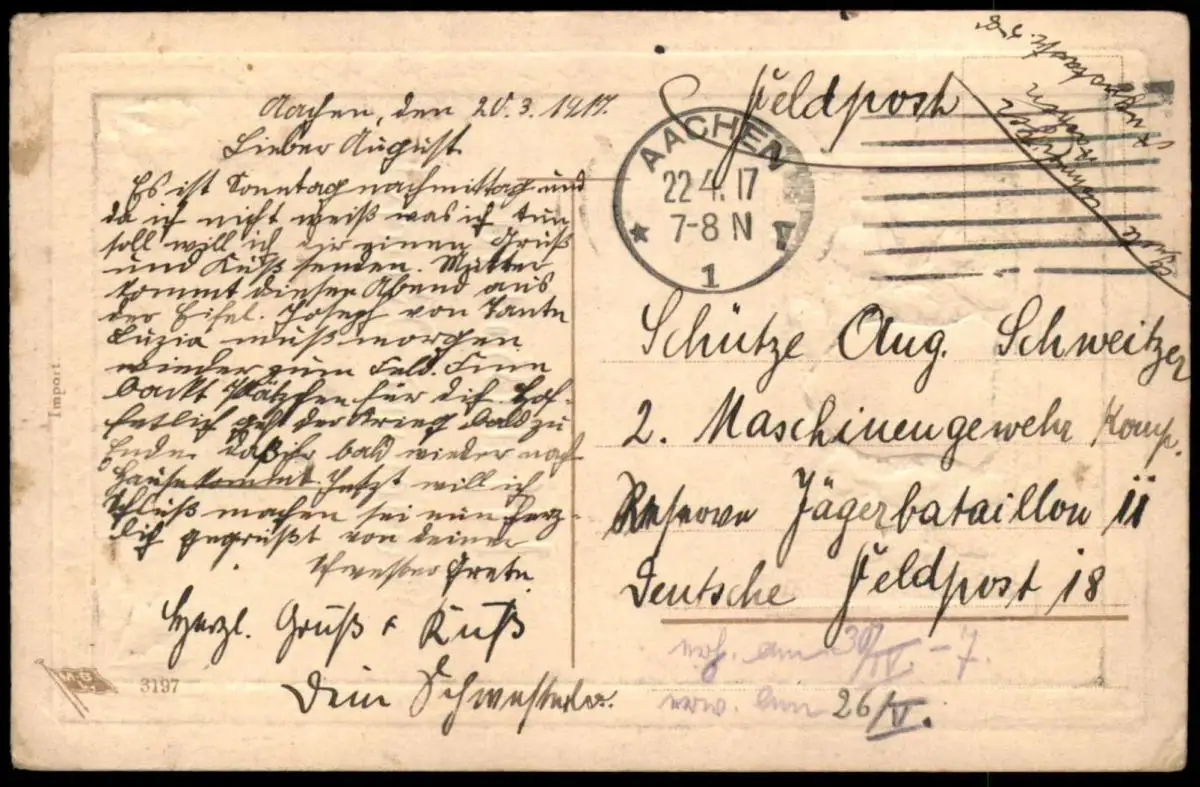 Aachen, den 20.3.1917.
Lieber August.
Es ist Sonntag nachmittag und
da ich nicht weiß was ich tun
soll will ich dir einen Gruß
und Kuß senden. Mutter
kommt diesen Abend aus
der Eifel. Joseph von Tante
Luzia muß morgen
wieder zum Feld. Finn
backt Plätzchen für dich Hof-
fentlich geht der Krieg bald zu
Ende. daß ihr bald wieder nach
Hause kommt. Jetzt will ich
Schluß machen sei nun herz-
lich gegrüßt von deiner
Schwester Greta
Herzl. Gruß & Kuß
Dein Schwesterlein.
Feldpost
AACHEN
22.4.17
7-8 N
1
Schütze Aug. Schweitzer
2. Maschinengewehr Komp.
Reserve Jägerbataillon ii
Deutsche Feldpost 18
erh. am 30/IV.-7.
erw. am 26/V.
Import
M.B
3197